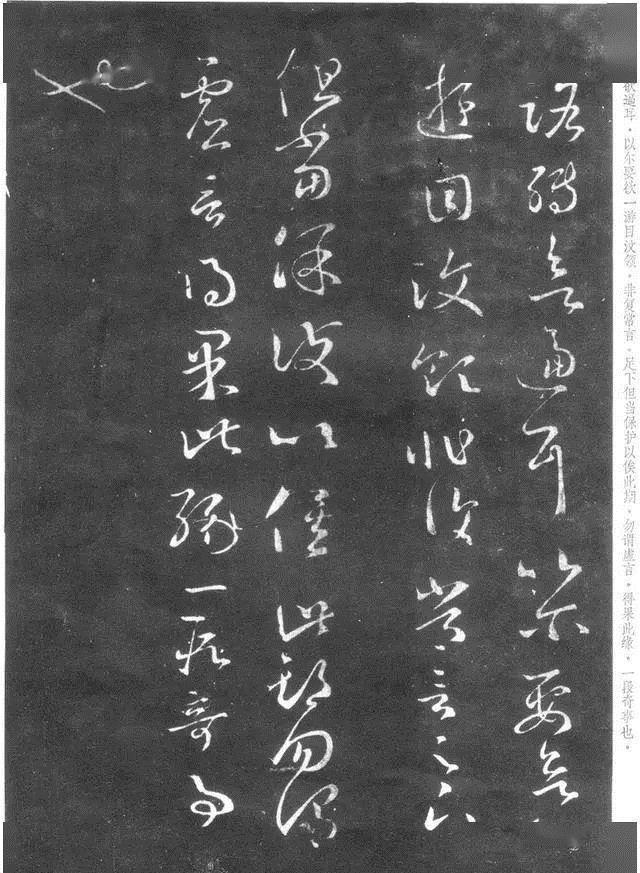 欲逼耳，以尔要欲一游目汶领，非复常言。足下但当保护以俟此期，勿谓虚言。得果此缘，一段奇事也。
路轉欲逼耳以尓要欲一
遊目汶領非復常言足下
但當保護以俟此期勿謂
虛言得果此緣一段奇事
也